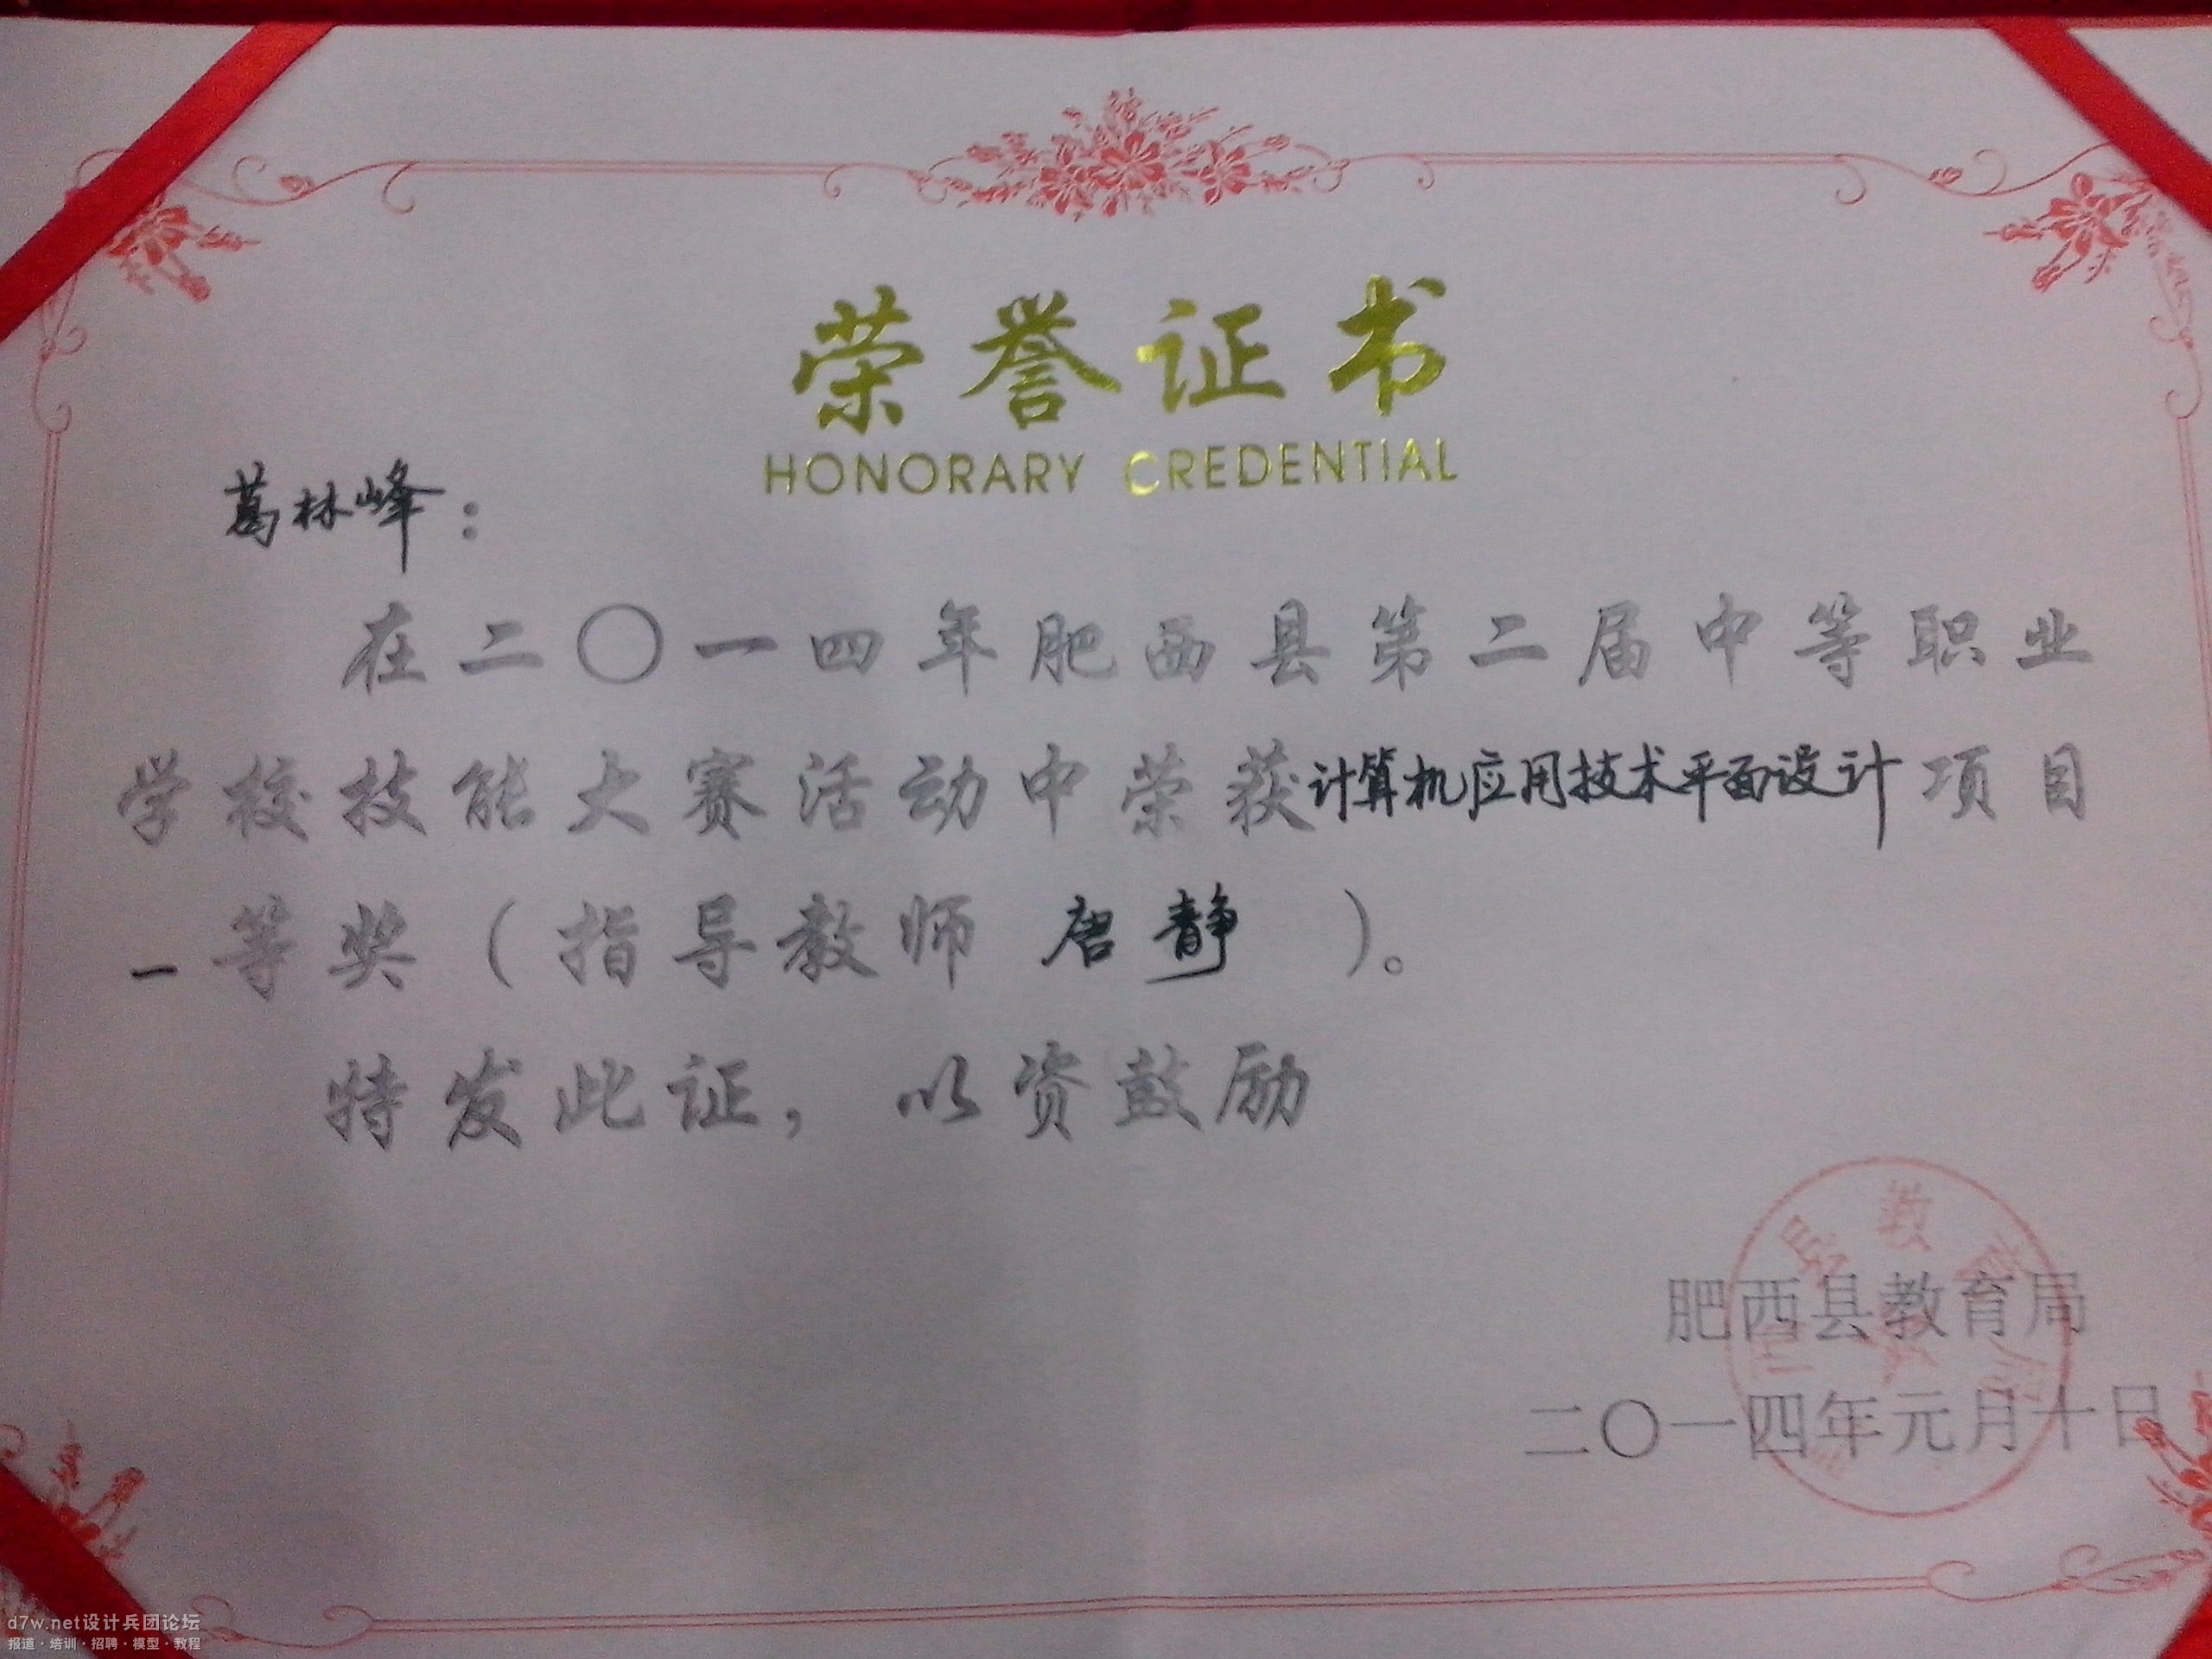 荣誉证书
HONORARY CREDENTIAL
葛林峰：
在二〇一四年肥西县第二届中等职业
学校技能大赛活动中荣获计算机应用技术平面设计项目
一等奖（指导教师 唐静 ）。
特发此证，以资鼓励
肥西县教育局
二〇一四年元月十日
d7w.net设计兵团论坛
报道·培训·招聘·模型·教程